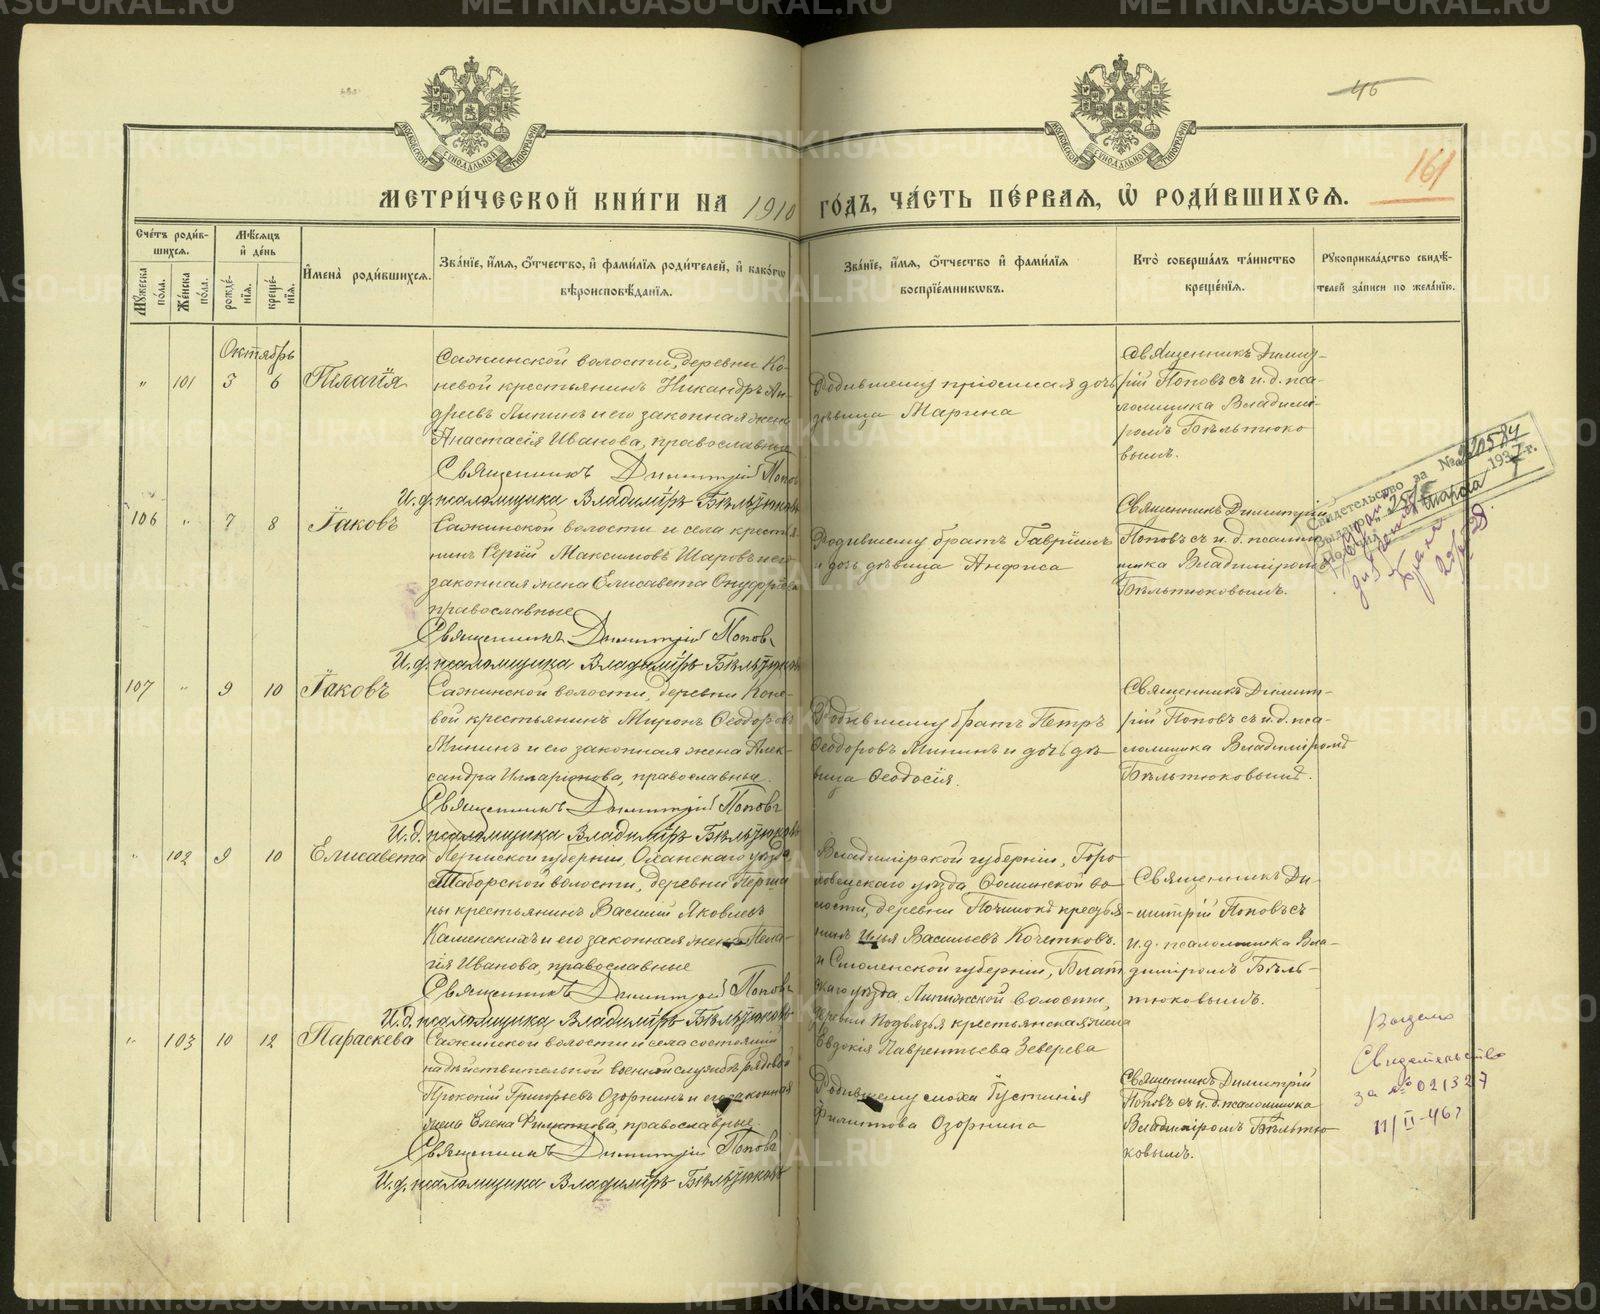 46
161
МЕТРИ́ЧЕСКОЙ КНИ́ГИ НА 1910 ГО́ДЪ, ЧА́СТЬ ПЕ́РВАѦ, Ѡ҆ РОДИ́ВШИХСѦ.
МОСКОВСКОЙ СѴНОДАЛЬНОЙ ТИПОГРАФІИ
МОСКОВСКОЙ СѴНОДАЛЬНОЙ ТИПОГРАФІИ
Сче́тъ роди́в-
шихсѧ.
Мꙋ́жеска по́ла.
Же́нска по́ла.
Мѣ́сѧцъ
и҆ де́нь
рожде́-
нїѧ.
креще́-
нїѧ.
И҆мена̀ роди́вшихсѧ.
Зва́нїе, и҆́мѧ, ѻ҆́тчество, и҆ фами́лїѧ роди́телей, и҆ како́гѡ
вѣроисповѣ́данїѧ.
Зва́нїе, и҆́мѧ, ѻ҆́тчество и҆ фами́лїѧ
воспрїе́мникѡвъ.
Кто̀ соверша́лъ та́инство
креще́нїѧ.
Рꙋкоприкла́дство свидѣ́-
телей за́писи по жела́нїю.
Октябрь
" 101 3 6 Пелагія
Сажинской волости, деревни Ко-
невой крестьянинъ Никандръ Ан-
дреевъ Липинъ и его законная жена
Анастасія Иванова, православные
Священникъ Димитрій Поповъ
И. д. псаломщика Владиміръ Бѣльтюковъ
дочь
дѣвица Марина
Священникъ Димит-
рій Поповъ съ и. д. пса-
ломщика Владимі-
ромъ Бѣльтюко
вымъ.
106 " 7 8 Іаковъ
Сажинской волости и села крестья-
нинъ Сергій Максимовъ Шаровъ и его
законная жена Елисавета Онуфріева
православные
Священникъ Димитрій Поповъ
И. д. псаломщика Владиміръ Бѣльтюковъ
Родившему братъ Гавріилъ
и дочь дѣвица Анфиса
Священникъ Димитрій
Поповъ съ и. д. псалом
щика Владиміромъ
Бѣльтюковымъ.
Свидетельство за № 220584
марта 1937 г.
107 " 9 10 Іаковъ
Сажинской волости, деревни Коне-
вой крестьянинъ Миронъ Ѳеодоровъ
Мининъ и его законная жена Алек-
сандра Илларіонова, православные.
Священникъ Димитрій Поповъ
И. д. псаломщика Владиміръ Бѣльтюковъ
Родившему братъ Петръ
Ѳеодоровъ Мининъ и дочь дѣ-
вица Ѳеодосія.
Священникъ Димит-
рій Поповъ съ и. д. пса-
ломщика Владиміромъ
Бѣльтюковымъ.
" 102 9 10 Елисавета
Пермской губерніи, Оханскаго уѣзда
Таборской волости, деревни
крестьянинъ Василій Яковлевъ
Каменскихъ и его законная жена Пела-
гія Иванова, православные
Священникъ Димитрій Поповъ
И. д. псаломщика Владиміръ Бѣльтюковъ
Владимірской губерніи, Горо
ховецкаго уѣзда Ѳоминской во-
лости, деревни Починокъ крестья-
нинъ Илья Васильевъ Кочетковъ.
и Смоленской губерніи,
уѣзда, волости,
деревни Подвязья крестьянская жена
Евдокія Лаврентьева Зеверева
Священникъ Ди-
митрій Поповъ съ
и. д. псаломщика Вла-
диміромъ Бѣль-
тюковымъ.
" 103 10 12 Параскева
Сажинской волости и села состоящій
на дѣйствительной военной службѣ рядовой
Прокопій Григорьевъ Озорнинъ и его законная
жена Елена Филиппова, православные.
Священникъ Димитрій Поповъ
И. д. псаломщика Владиміръ Бѣльтюковъ
Родившему сноха Іустинія
Филиппова Озорнина
Священникъ Димитрій
Поповъ съ и. д. псаломщика
Владиміромъ Бѣльтю
ковымъ.
Выдано
Свидетельство
за № 021327
11/II-46 г
METRIKI.GASO-URAL.RU